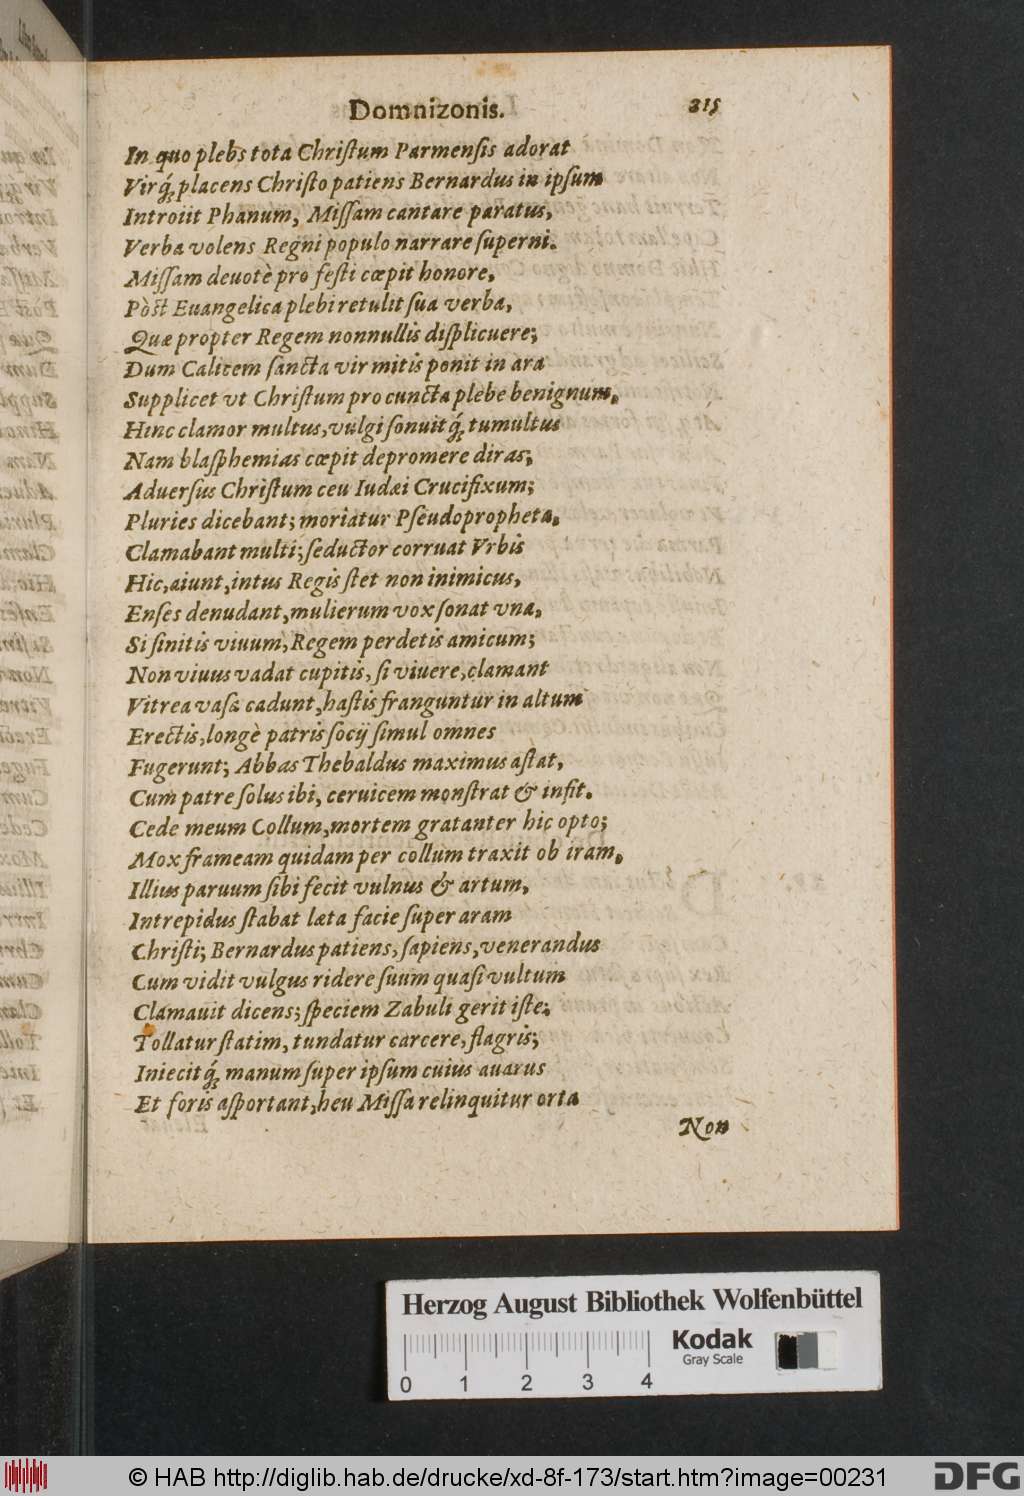 Domnizonis. 315
In quo plebs tota Chriſtum Parmenſis adorat
Virq́; placens Chriſto patiens Bernardus in ipſum
Introiit Phanum, Miſſam cantare paratus,
Verba volens Regni populo narrare ſuperni.
Miſſam deuotè pro feſti cœpit honore,
Pòſt Euangelica plebi retulit ſua verba,
Quæ propter Regem nonnullis diſplicuere;
Dum Calicem ſancta vir mitis ponit in ara
Supplicet vt Chriſtum pro cuncta plebe benignum,
Hinc clamor multus, vulgi ſonuit q́; tumultus
Nam blaſphemias cœpit depromere diras;
Aduerſus Chriſtum ceu Iudæi Crucifixum;
Pluries dicebant; moriatur Pſeudopropheta,
Clamabant multi; ſeductor corruat Vrbis
Hic, aiunt, intus Regis ſtet non inimicus,
Enſes denudant, mulierum vox ſonat vna,
Si ſinitis viuum, Regem perdetis amicum;
Non viuus vadat cupitis, ſi viuere, clamant
Vitrea vaſa cadunt, haſtis franguntur in altum
Erectis, longè patris ſocij ſimul omnes
Fugerunt; Abbas Thebaldus maximus aſtat,
Cum patre ſolus ibi, ceruicem monſtrat & infit.
Cede meum Collum, mortem gratanter hic opto;
Mox frameam quidam per collum traxit ob iram,
Illius paruum ſibi fecit vulnus & artum,
Intrepidus ſtabat læta facie ſuper aram
Chriſti; Bernardus patiens, ſapiens, venerandus
Cum vidit vulgus ridere ſuum quaſi vultum
Clamauit dicens; ſpeciem Zabuli gerit iſte;
Tollatur ſtatim, tundatur carcere, flagris;
Iniecit q́; manum ſuper ipſum cuius auarus
Et foris aſportant, heu Miſſa relinquitur orta
Non
Herzog August Bibliothek Wolfenbüttel
Kodak
Gray Scale
0 1 2 3 4
© HAB http://diglib.hab.de/drucke/xd-8f-173/start.htm?image=00231
DFG